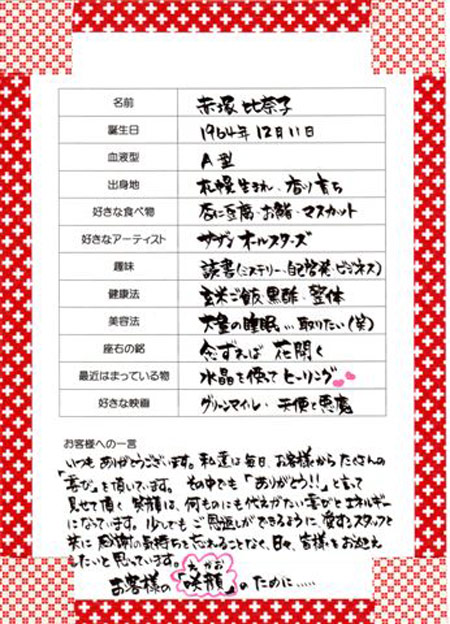 名前 赤塚 比奈子
誕生日 1964年12月11日
血液型 A型
出身地 札幌生まれ、香り育ち
好きな食べ物 杏に豆腐・お鮨・マスカット
好きなアーティスト サザンオールスターズ
趣味 読書(ミステリー・自己啓発・ビジネス)
健康法 玄米ご飯、黒酢・整体
美容法 大量の睡眠…取りたい(笑)
座右の銘 念ずれば 花開く
最近はまっている物 水晶を使ってヒーリング
好きな映画 グリーンマイル・天使と悪魔
お客様への一言
いつも ありがとうございます。私達は毎日、お客様から たくさんの
「喜び」を頂いています。その中でも「ありがとう!!」と言って
見せて頂く 笑顔は、何ものにも代えがたい喜びとエネルギー
になっています。少しでもご恩返しができるように、愛すスタッフと
共に 感謝の気持ちを忘れることなく、日々、皆様をお迎え
したいと思っています。
えがお
お客様の「咲顔」のために……